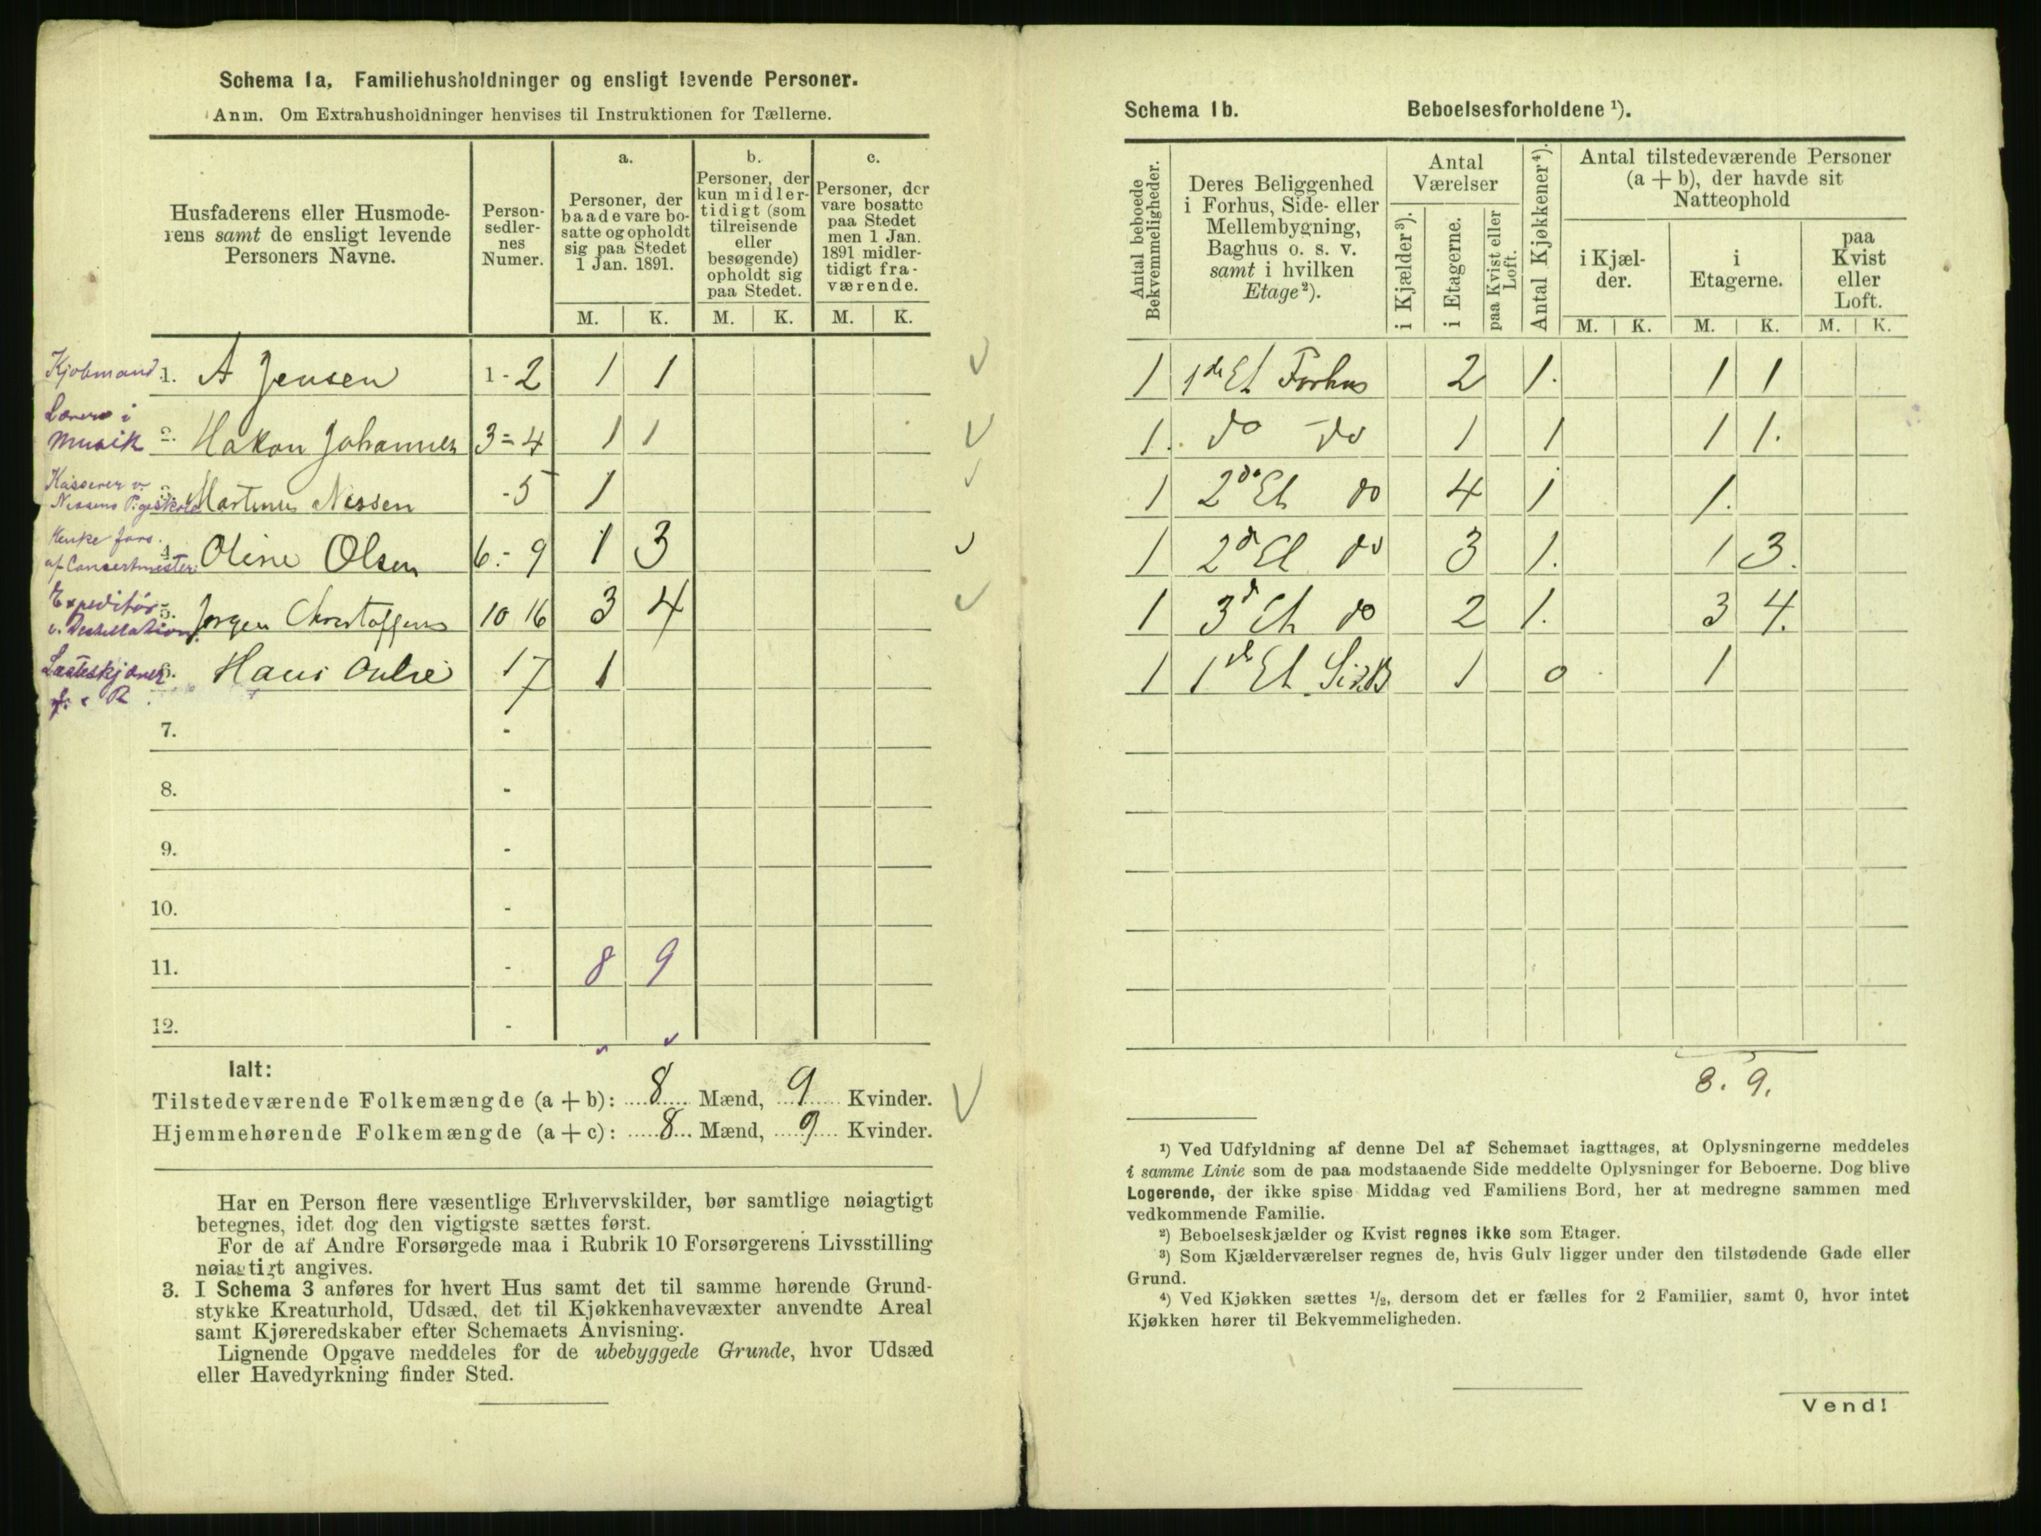 Schema 1a, Familiehusholdninger og ensligt levende Personer.
Anm. Om Extrahusholdninger henvises til Instruktionen for Tællerne.
Husfaderens eller Husmode-
rens samt de ensligt levende
Personers Navne.
Person-
sedler-
nes
Numer.
a.
Personer, der
baade vare bo-
satte og opholdt
sig paa Stedet
1 Jan. 1891.
b.
Personer, der
kun midler-
tidigt (som
tilreisende
eller
besøgende)
opholdt sig
paa Stedet.
c.
Personer, der
vare bosatte
paa Stedet
men 1 Jan.
1891 midler-
tidigt fra-
værende.
M. K. M. K. M. K.
Kjøbmand 1. A Jensen 1-2 1 1
Lærer i
Musik 2. Hakon Johannes 3-4 1 1
Kasserer v.
Nissens Pigeskole 3. Martinus Nissen -5 1
Enke
af Concertmester 4. Oline Olsen 6-9 1 3
Expeditør
v. Destillation 5. Jørgen 10 16 3 4
6. Hans 17 1
7. -
8. -
9. -
10. -
11. - 8 9
12. -
Ialt:
Tilstedeværende Folkemængde (a + b): 8 Mænd, 9 Kvinder.
Hjemmehørende Folkemængde (a + c): 8 Mænd, 9 Kvinder.
Har en Person flere væsentlige Erhvervskilder, bør samtlige nøiagtigt
betegnes, idet dog den vigtigste sættes først.
For de af Andre Forsørgede maa i Rubrik 10 Forsørgerens Livsstilling
nøiagtigt angives.
3. I Schema 3 anføres for hvert Hus samt det til samme hørende Grund-
stykke Kreaturhold, Udsæd, det til Kjøkkenhavevæxter anvendte Areal
samt Kjøreredskaber efter Schemaets Anvisning.
Lignende Opgave meddeles for de ubebyggede Grunde, hvor Udsæd
eller Havedyrkning finder Sted.
Schema 1b. Beboelsesforholdene ¹).
Antal beboede
Bekvemmeligheder.
Deres Beliggenhed
i Forhus, Side- eller
Mellembygning,
Baghus o. s. v.
samt i hvilken
Etage²).
Antal
Værelser
i Kjælder³).
i Etagerne.
paa Kvist eller
Loft.
Antal Kjøkkener⁴).
Antal tilstedeværende Personer
(a + b), der havde sit
Natteophold
i Kjæl-
der.
i
Etagerne.
paa
Kvist
eller
Loft.
M. K. M. K. M. K.
1 1de Et Forhus 2 1. 1 1
1. do do 1 1 1 1.
1 2de Et do 4 1 1.
1 2d Et do 3 1. 1 3.
1 3d Et do 2 1. 3 4.
1 1de Et Sid.B 1 0 1
8. 9.
¹) Ved Udfyldning af denne Del af Schemaet iagttages, at Oplysningerne meddeles
i samme Linie som de paa modstaaende Side meddelte Oplysninger for Beboerne. Dog blive
Logerende, der ikke spise Middag ved Familiens Bord, her at medregne sammen med
vedkommende Familie.
²) Beboelseskjælder og Kvist regnes ikke som Etager.
³) Som Kjælderværelser regnes de, hvis Gulv ligger under den tilstødende Gade eller
Grund.
⁴) Ved Kjøkken sættes ½, dersom det er fælles for 2 Familier, samt 0, hvor intet
Kjøkken hører til Bekvemmeligheden.
Vend!